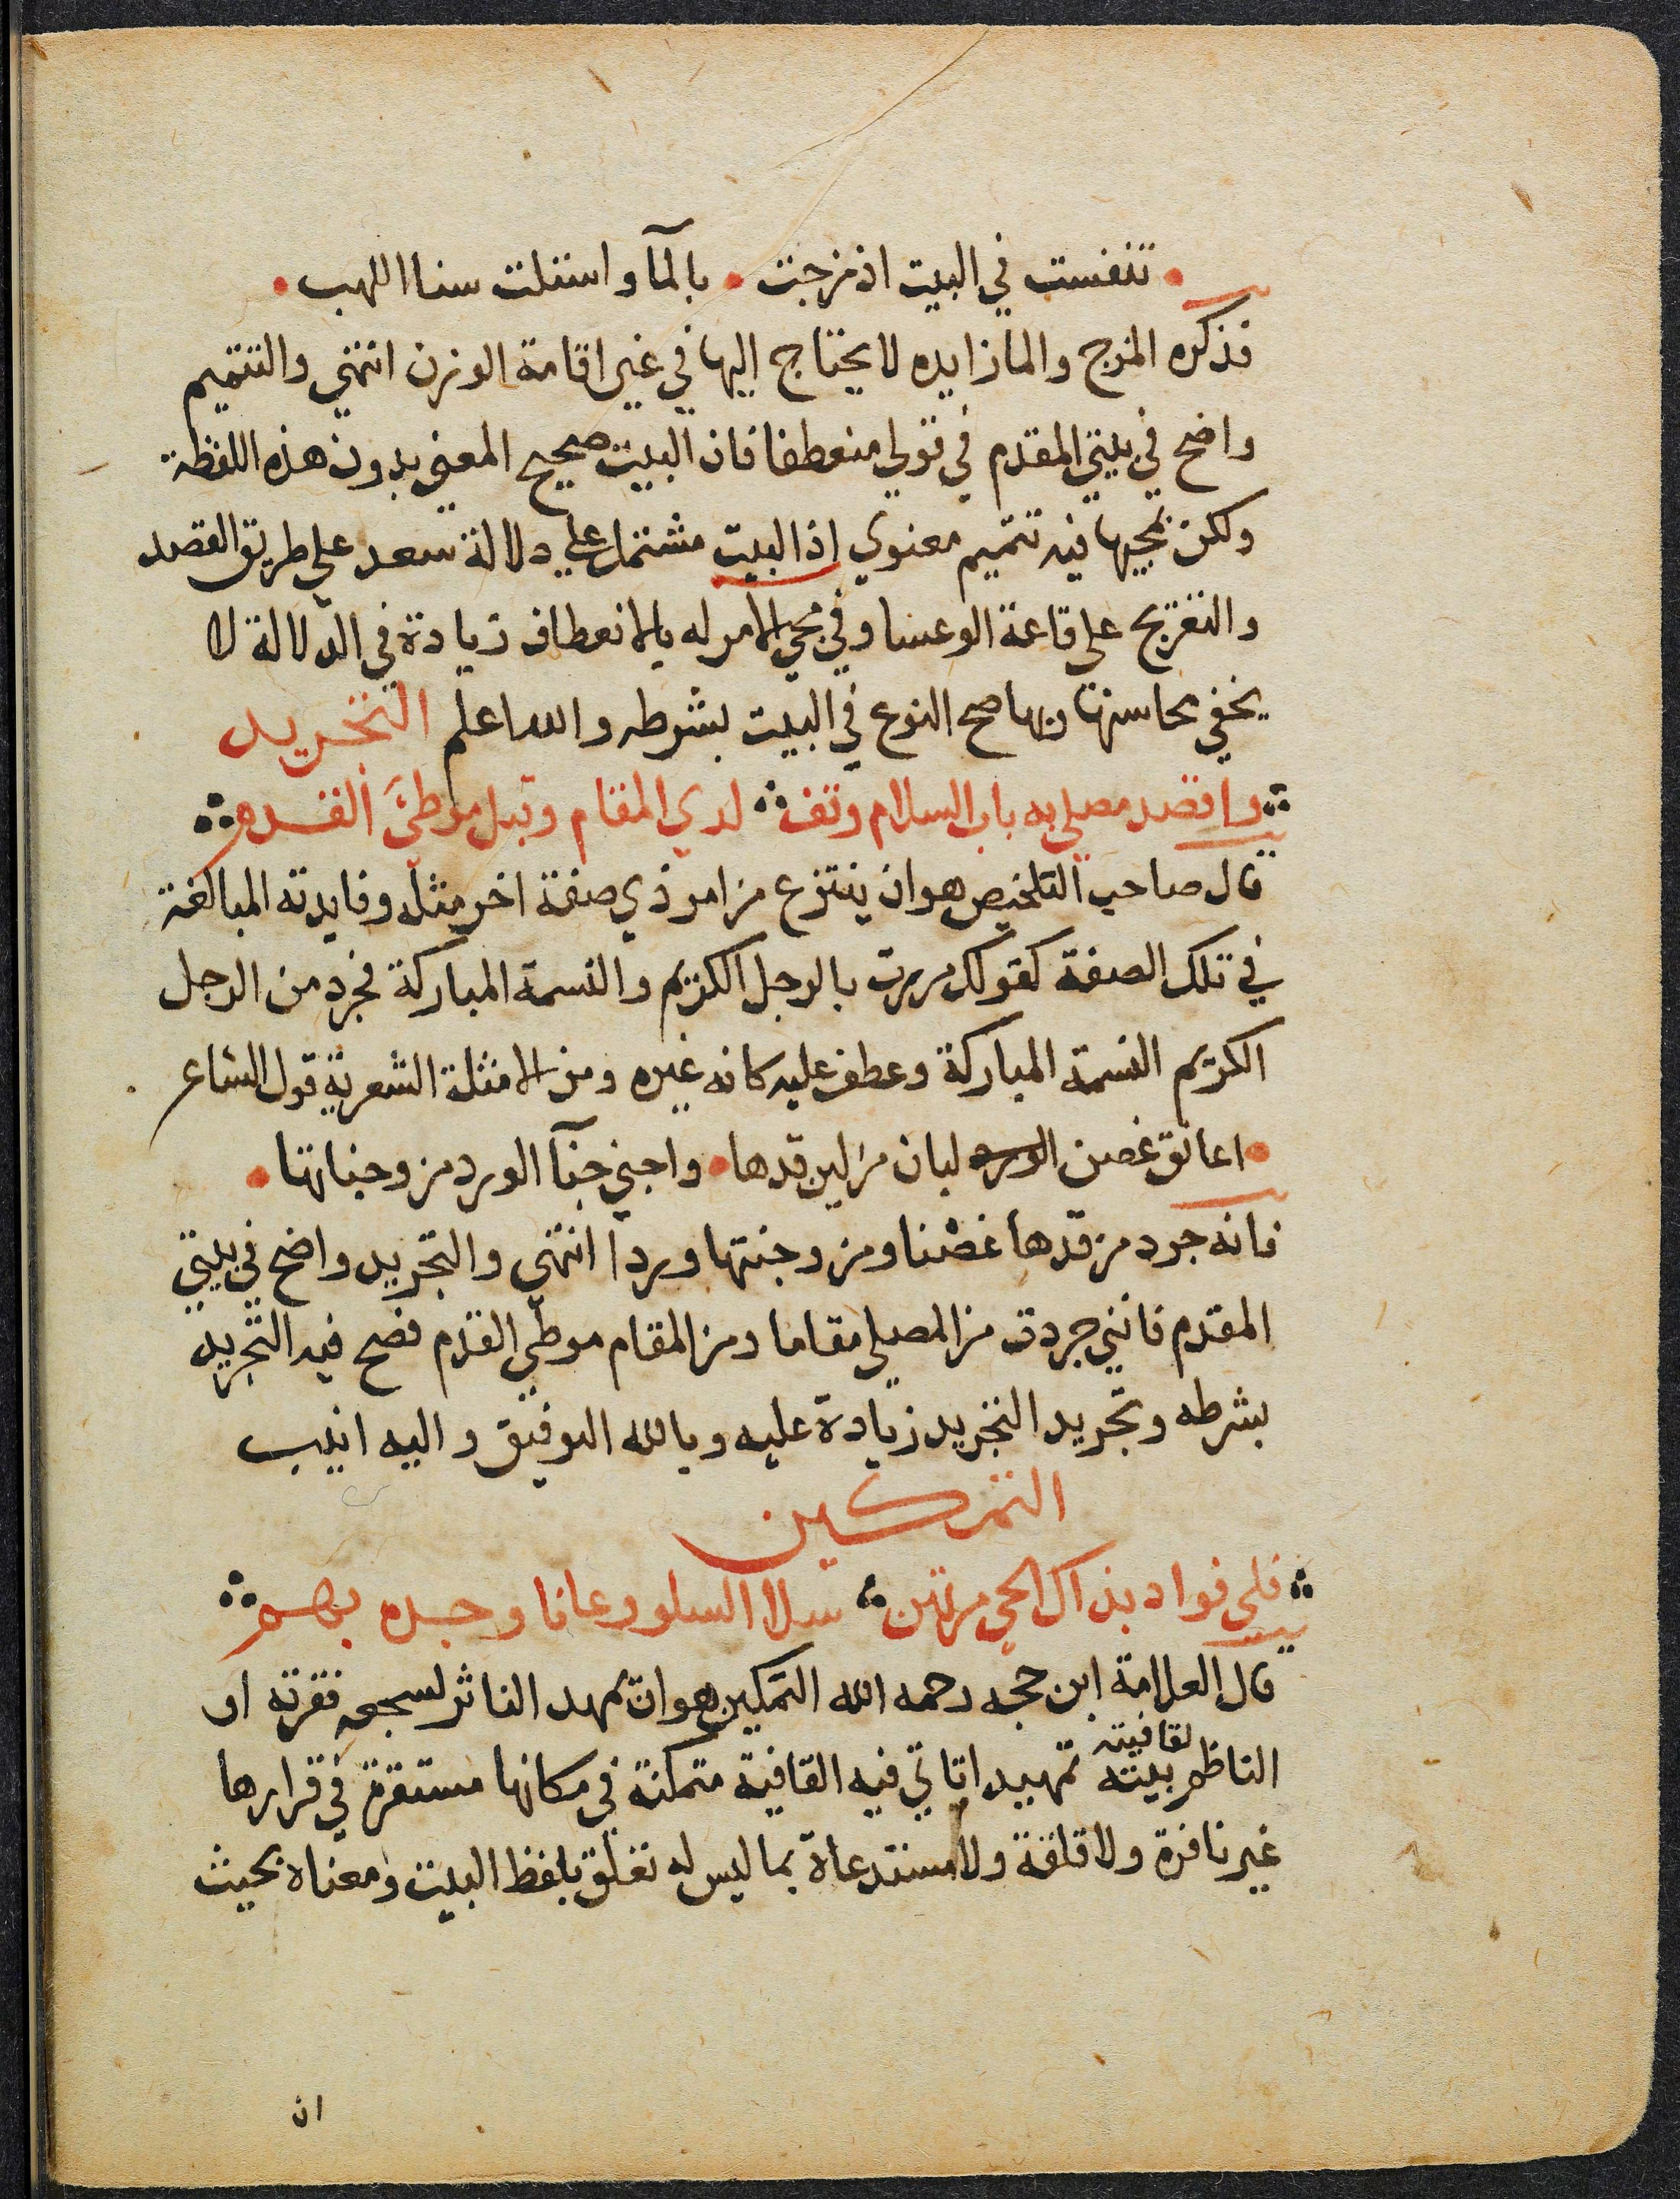 تنفست في البيت اذ مزجت • بالمآ واستلت سنا اللهب •
فذكره المزج والما زايده لا يحتاج اليها في غير اقامة الوزن انتهي والتتميم
واضح في بيتي المقدم في قولي منعطفا فان البيت صحيح المعني بدون هذه اللفظة
ولكن مجيها فيه تتميم معنوي اذ البيت مشتمل علي دلالة سعد علي طريق القصد
والتفريج علي قاعة الوعسا وفي مجي الامر له بالانعطاف زيادة في الدلالة لا
يخفي محاسنها وبها صح النوع في البيت بشرطه والله اعلم التجريد
واقصد مصلي به باب السلام وقف لدي المقام وقبل موطئ القدم
قال صاحب التلخيص هو ان ينتزع من امر ذي صفة اخر مثله وفايدته المبالغة
في تلك الصفة كقولك مررت بالرجل الكريم والنسمة المباركة فجرد من الرجل
الكريم النسمة المباركة وعطف عليه كانه غيره ومن الامثلة الشعرية قول الشاعر
• اعانق غصن لبان من لين قدها • واجني جنآ الورد من وجناتها •
فانه جرد من قدها غصنا ومن وجنتها وردا انتهي والتجريد واضح في بيتي
المقدم فانني جردت من المصلي مقاما ومن المقام موطي القدم فصح فيه التجريد
بشرطه وتجريد التجريد زيادة عليه وبالله التوفيق واليه انيب
التمكين
فلي فواد بذاك الحي مرتهن سلا السلو وعانا وجده بهم
قال العلامة ابن حجه رحمه الله التمكين هو ان يمهد الناثر لسجعه فقرته او
الناظم لقافيته بيته تمهيدا تاتي فيه القافية متمكنة في مكانها مستقرة في قرارها
غير نافرة ولا قلقة ولا مستدعاة بما ليس له تعلق بلفظ البيت ومعناه بحيث
ان